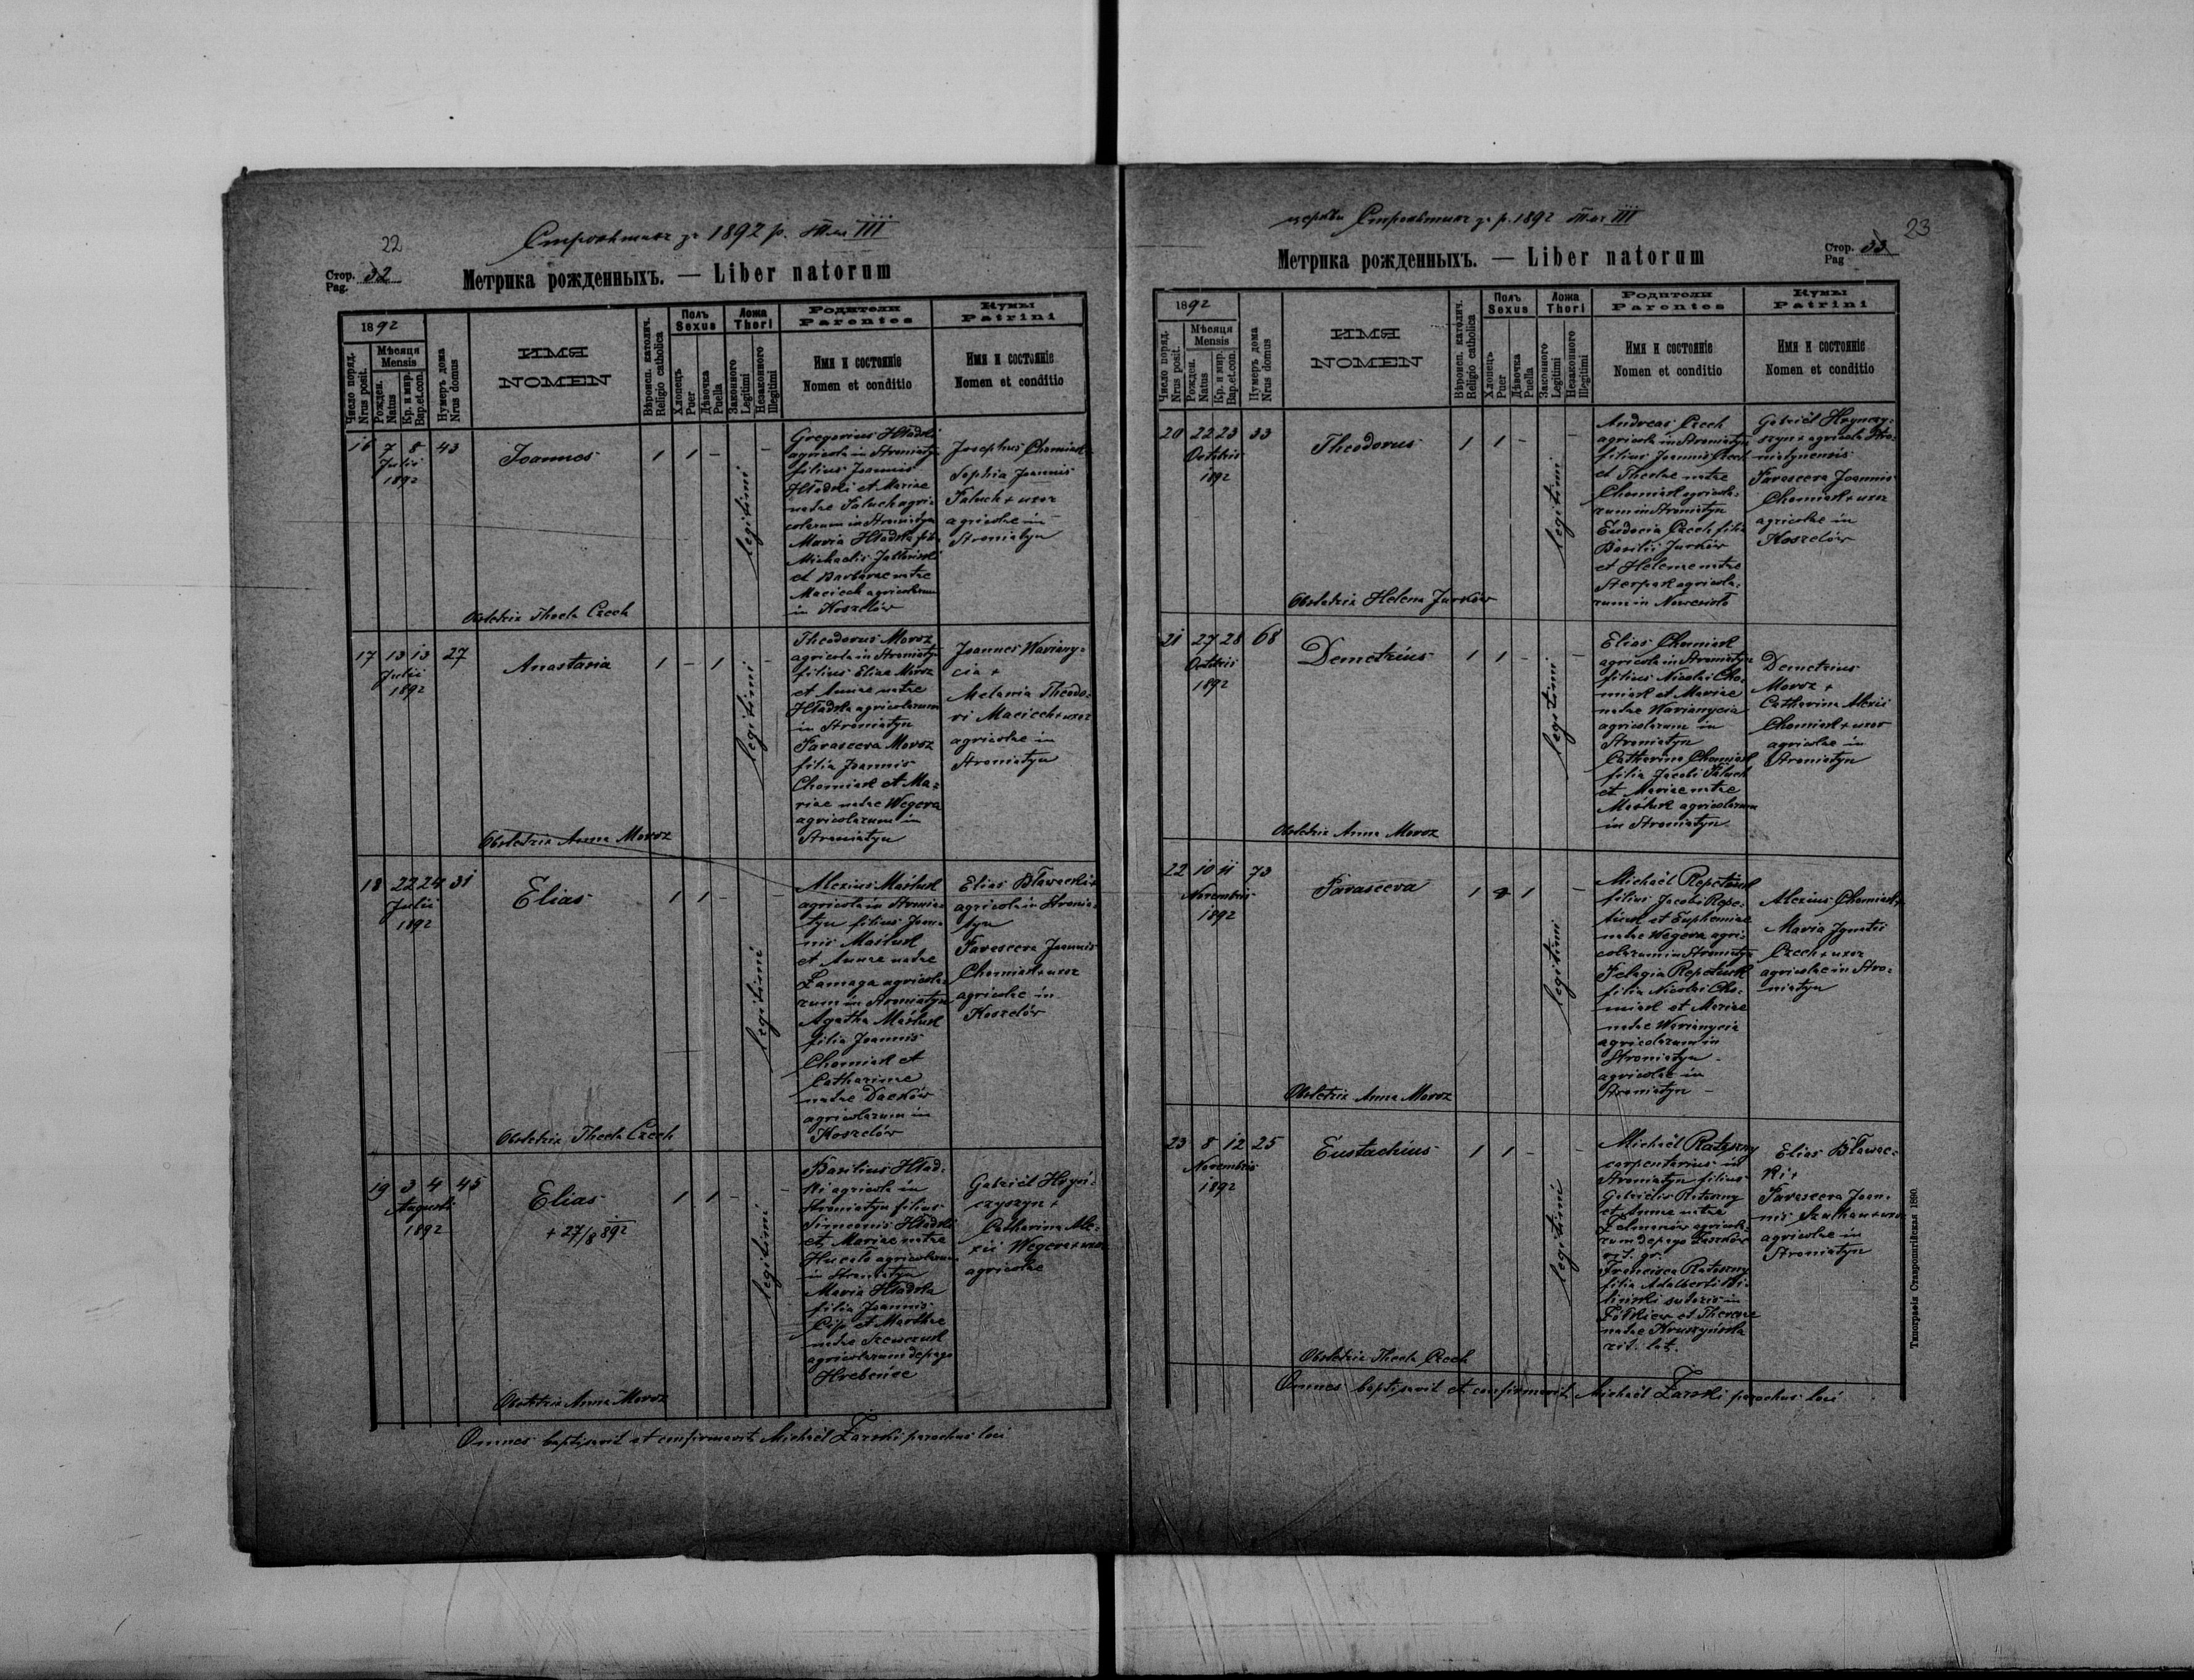 22
1892 р. III
Стор.
Pag. 32
Метрика рожденныхъ. — Liber natorum
1892
Число поряд.
Nrus posit.
Мѣсяця
Mensis
Рожден.
Natus
Кр. и мир.
Bap.et.con.
Нумеръ дома
Nrus domus
ИМЯ
NOMEN
Вѣроисп. католич.
Religio catholica
Полъ
Sexus
Хлопець
Puer
Дѣвочка
Puella
Ложа
Thori
Законного
Legitimi
Незаконного
Illegitimi
Родители
Parentes
Имя и состояніе
Nomen et conditio
Кумы
Patrini
Имя и состояніе
Nomen et conditio
16 7 8 43
Julii
1892
Joannes
1 1 - legitimi -
Gregorius Hładki
agricola in Stroniatyn
filius Joannis
Hładki et Mariae
natae Faluch agri-
colarum in Stroniatyn
Maria Hładka filia
Michaelis
et Barbarae natae
Maciech agricolarum
in Koszelów
Josephus Chomiak
Sophia Joannis
Faluch + uxor
agricolae in
Stroniatyn
Obstetrix Thecla Czech
17 13 13 27
Julii
1892
Anastasia
1 - 1 legitimi -
Theodorus Moroz
agricola in Stroniatyn
filius Eliae Moroz
et Annae natae
Hładka agricolarum
in Stroniatyn
Parasceva Moroz
filia Joannis
Chomiak et Ma-
riae natae Wegera
agricolarum in
Stroniatyn
Joannes Wariany-
cia +
Melania Theodo-
ri Maciech + uxor
agricolae in
Stroniatyn
Obstetrix Anna Moroz
18 22 24 31
Julii
1892
Elias
1 1 - legitimi -
Alexius Maśluk
agricola in Stronia-
tyn filius Joan-
nis Maśluk
et Annae natae
Łamaga agricola-
rum in Stroniatyn
Agatha Maśluk
filia Joannis
Chomiak et
Catharinae
natae Dacków
agricolarum in
Koszelów
Elias Bławacki +
agricola in Stronia-
tyn
Parasceva Joannis
Chomiak + uxor
agricolae in
Koszelów
Obstetrix Thecla Czech
19 3 4 45
Augusti
1892
Elias
+ 27/8 892
1 1 - legitimi -
Basilius Hład-
ki agricola in
Stroniatyn filius
Simeonis Hładki
et Mariae natae
agricolarum
in Stroniatyn
Maria Hładka
filia Joannis
Cip et Marthae
natae Szewczuk
agricolarum de pago
Hrebeńce
Gabriël Hryń-
czyszyn +
Catharina Ale-
xii Wegera + uxor
agricolae
Obstetrix Anna Moroz
Omnes baptisavit et confirmavit Michaël Żarski parochus loci
23
церкви 1892 III
Метрика рожденныхъ. — Liber natorum
Стор.
Pag 33
1892
Число поряд.
Nrus posit.
Мѣсяця
Mensis
Рожден.
Natus
Кр. и мир.
Bap.et.con.
Нумеръ дома
Nrus domus
ИМЯ
NOMEN
Вѣроисп. католич.
Religio catholica
Полъ
Sexus
Хлопець
Puer
Дѣвочка
Puella
Ложа
Thori
Законного
Legitimi
Незаконного
Illegitimi
Родители
Parentes
Имя и состояніе
Nomen et conditio
Кумы
Patrini
Имя и состояніе
Nomen et conditio
20 22 23 33
Octobris
1892
Theodorus
1 1 - legitimi -
Andreas Czech
agricola in Stroniatyn
filius Joannis Czech
et Theclae natae
Chomiak agricola-
rum in Stroniatyn
Eudocia Czech filia
Basilii Jurków
et Helenae natae
agricola-
rum in
Gabriël Hrynczy-
szyn + agricola Stro-
niatynensis
Parasceva Joannis
Chomiak + uxor
agricolae in
Koszelów
Obstetrix Helena Jurków
21 27 28 68
Octobris
1892
Demetrius
1 1 - legitimi -
Elias Chomiak
agricola in Stroniatyn
filius Nicolai Cho-
miak et Mariae
natae Warianycia
agricolarum in
Stroniatyn
Catharina Chomiak
filia Jacobi Faluch
et Mariae natae
Maśluk agricolarum
in Stroniatyn
Demetrius
Moroz +
Catharina Alexii
Chomiak + uxor
agricolae in
Stroniatyn
Obstetrix Anna Moroz
22 10 11 73
Novembris
1892
Parasceva
1 - 1 legitimi -
Michaël Repetiuk
filius Jacobi Repe-
tiuk et Euphemiae
natae Wegera agri-
colarum in Stroniatyn
Pelagia Repetiuk
filia Nicolai Cho-
miak et Mariae
natae Warianycia
agricolarum in
Stroniatyn
agricolae in
Stroniatyn
Alexius Chomiak +
Maria Ignatii
Czech + uxor
agricolae in Stro-
niatyn
Obstetrix Anna Moroz
23 8 12 25
Novembris
1892
Eustachius
1 1 - legitimi -
Michaël Rataszny
carpentarius in
Stroniatyn filius
Gabrielis Rataszny
et Annae natae
agricola-
rum de pago
rit. gr.
Francisca Rataszny
filia Adalberti
sutoris in
Żółkiew et Theresae
natae Kruszyńska
rit. lat.
Elias Bławac-
ki +
Parasceva Joan-
nis + uxor
agricolae in
Stroniatyn
Obstetrix Thecla Czech
Omnes baptisavit et confirmavit Michaël Żarski parochus loci
Типографія Ставропигійская 1890.